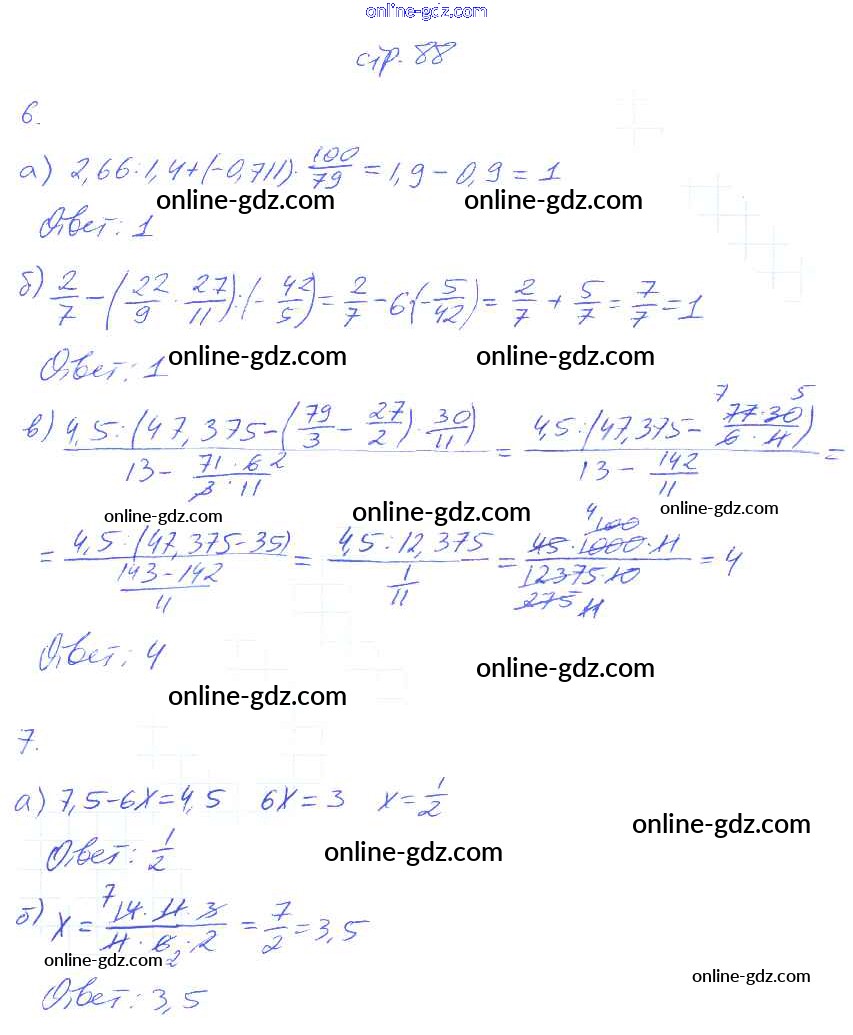 online-gdz.com
стр. 88
6.
а) 2,66:1,4+(-0,711)·100/79=1,9-0,9=1
online-gdz.com online-gdz.com
Ответ: 1
б) 2/7-(22/9·27/11):(-42/5)=2/7-6(-5/42)=2/7+5/7=7/7=1
online-gdz.com online-gdz.com
Ответ: 1
в) 4,5:(47,375-(79/3-27/2)·30/11)/(13-71·6 2/3·11)=4,5:(47,375-7 77·30 5/6·11)/(13-142/11)=
online-gdz.com online-gdz.com online-gdz.com
=4,5:(47,375-35)/((143-142)/11)=4,5:12,375/(1/11)=45·1000·11 4 100/12375·10 275 11=4
Ответ: 4
online-gdz.com online-gdz.com
7.
а) 7,5-6x=4,5 6x=3 x=1/2
online-gdz.com
Ответ: 1/2
online-gdz.com
б) x=7 14·11·3/11·6·2 2=7/2=3,5
online-gdz.com online-gdz.com
Ответ: 3,5